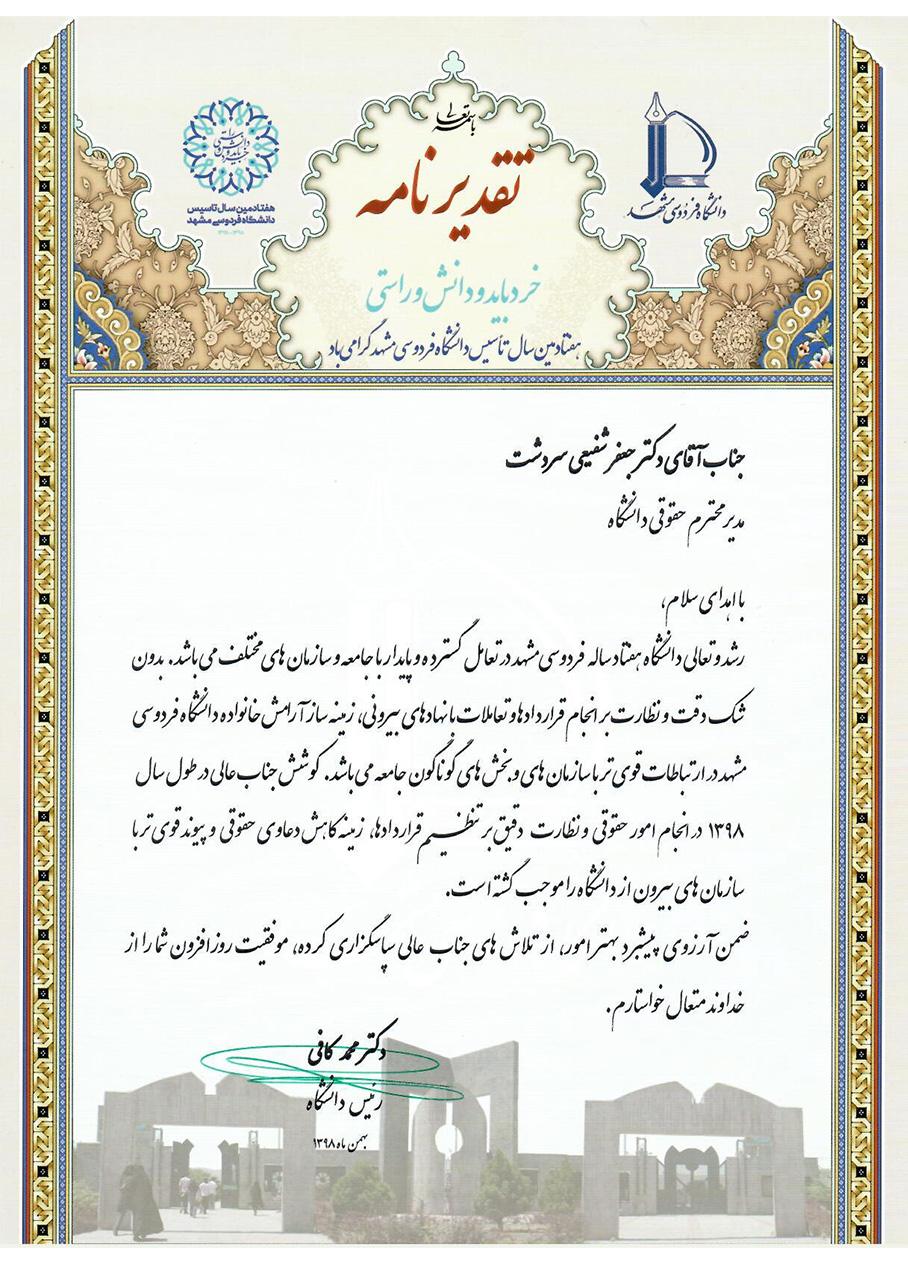 باسمه تعالی
تقدیرنامه
خرد باید و دانش و راستی
هفتادمین سال تأسیس دانشگاه فردوسی مشهد گرامی باد
دانشگاه فردوسی مشهد
خرد باید و دانش و راستی
هفتادمین سال تاسیس
دانشگاه فردوسی مشهد
۱۳۲۸-۱۳۹۸
جناب آقای دکتر جعفر شفیعی سردشت
مدیر محترم حقوقی دانشگاه
با اهدای سلام،
رشد و تعالی دانشگاه هفتاد ساله فردوسی مشهد در تعامل گسترده و پایدار با جامعه و سازمان های مختلف می باشد. بدون
شک دقت و نظارت بر انجام قراردادها و تعاملات با نهادهای بیرونی، زمینه ساز آرامش خانواده دانشگاه فردوسی
مشهد در ارتباطات قوی تر با سازمان های و بخش های گوناگون جامعه می باشد. کوشش جناب عالی در طول سال
۱۳۹۸ در انجام امور حقوقی و نظارت دقیق بر تنظیم قراردادها، زمینه کاهش دعاوی حقوقی و پیوند قوی تر با
سازمان های بیرون از دانشگاه را موجب گشته است.
ضمن آرزوی پیشبرد بهتر امور، از تلاش های جناب عالی سپاسگزاری کرده، موفقیت روزافزون شما را از
خداوند متعال خواستارم.
دکتر محمد کافی
رئیس دانشگاه
بهمن ماه ۱۳۹۸